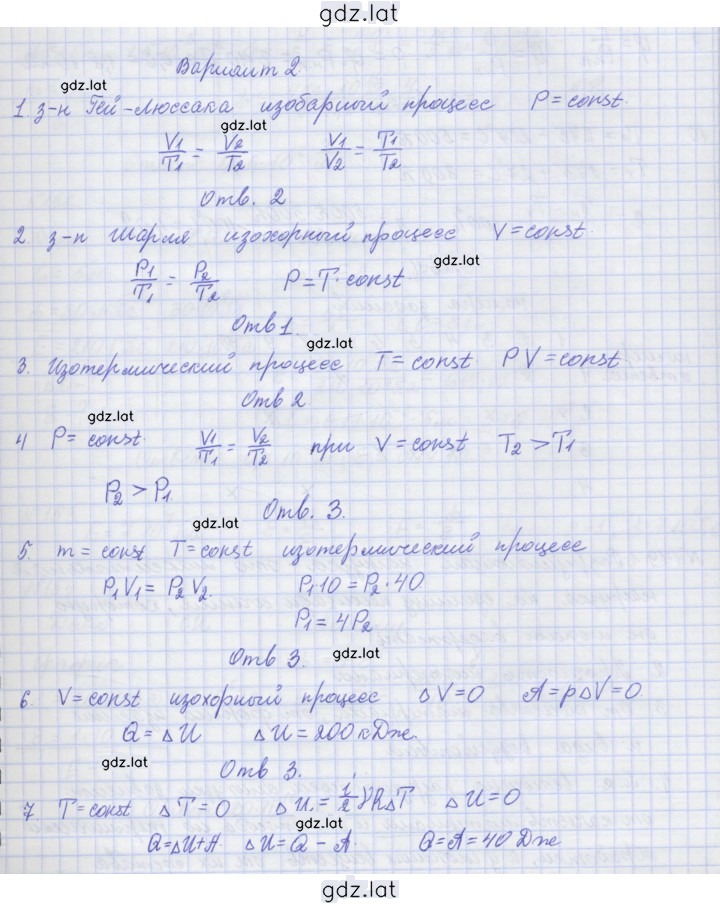 gdz.lat
Вариант 2
gdz.lat
1. з-н Гей-Люссака изобарный процесс P = const.
gdz.lat
V1/T1 = V2/T2 V1/V2 = T1/T2
Отв. 2
2. з-н Шарля изохорный процесс V = const.
gdz.lat
P1/T1 = P2/T2 P = T · const
Отв 1.
gdz.lat
3. Изотермический процесс T = const PV = const
Отв 2
gdz.lat
4 P = const. V1/T1 = V2/T2 при V = const T2 > T1
P2 > P1
Отв. 3.
gdz.lat
5. m = const T = const изотермический процесс
P1V1 = P2V2. P1·10 = P2·40
P1 = 4P2
Отв 3.
gdz.lat
6. V = const изохорный процесс ΔV = 0 A = pΔV = 0
Q = ΔU ΔU = 200 кДж.
gdz.lat
Отв 3.
7 T = const ΔT = 0 ΔU = i/2 νRΔT ΔU = 0
gdz.lat
Q = ΔU + A ΔU = Q - A Q = A = 40 Дж
gdz.lat